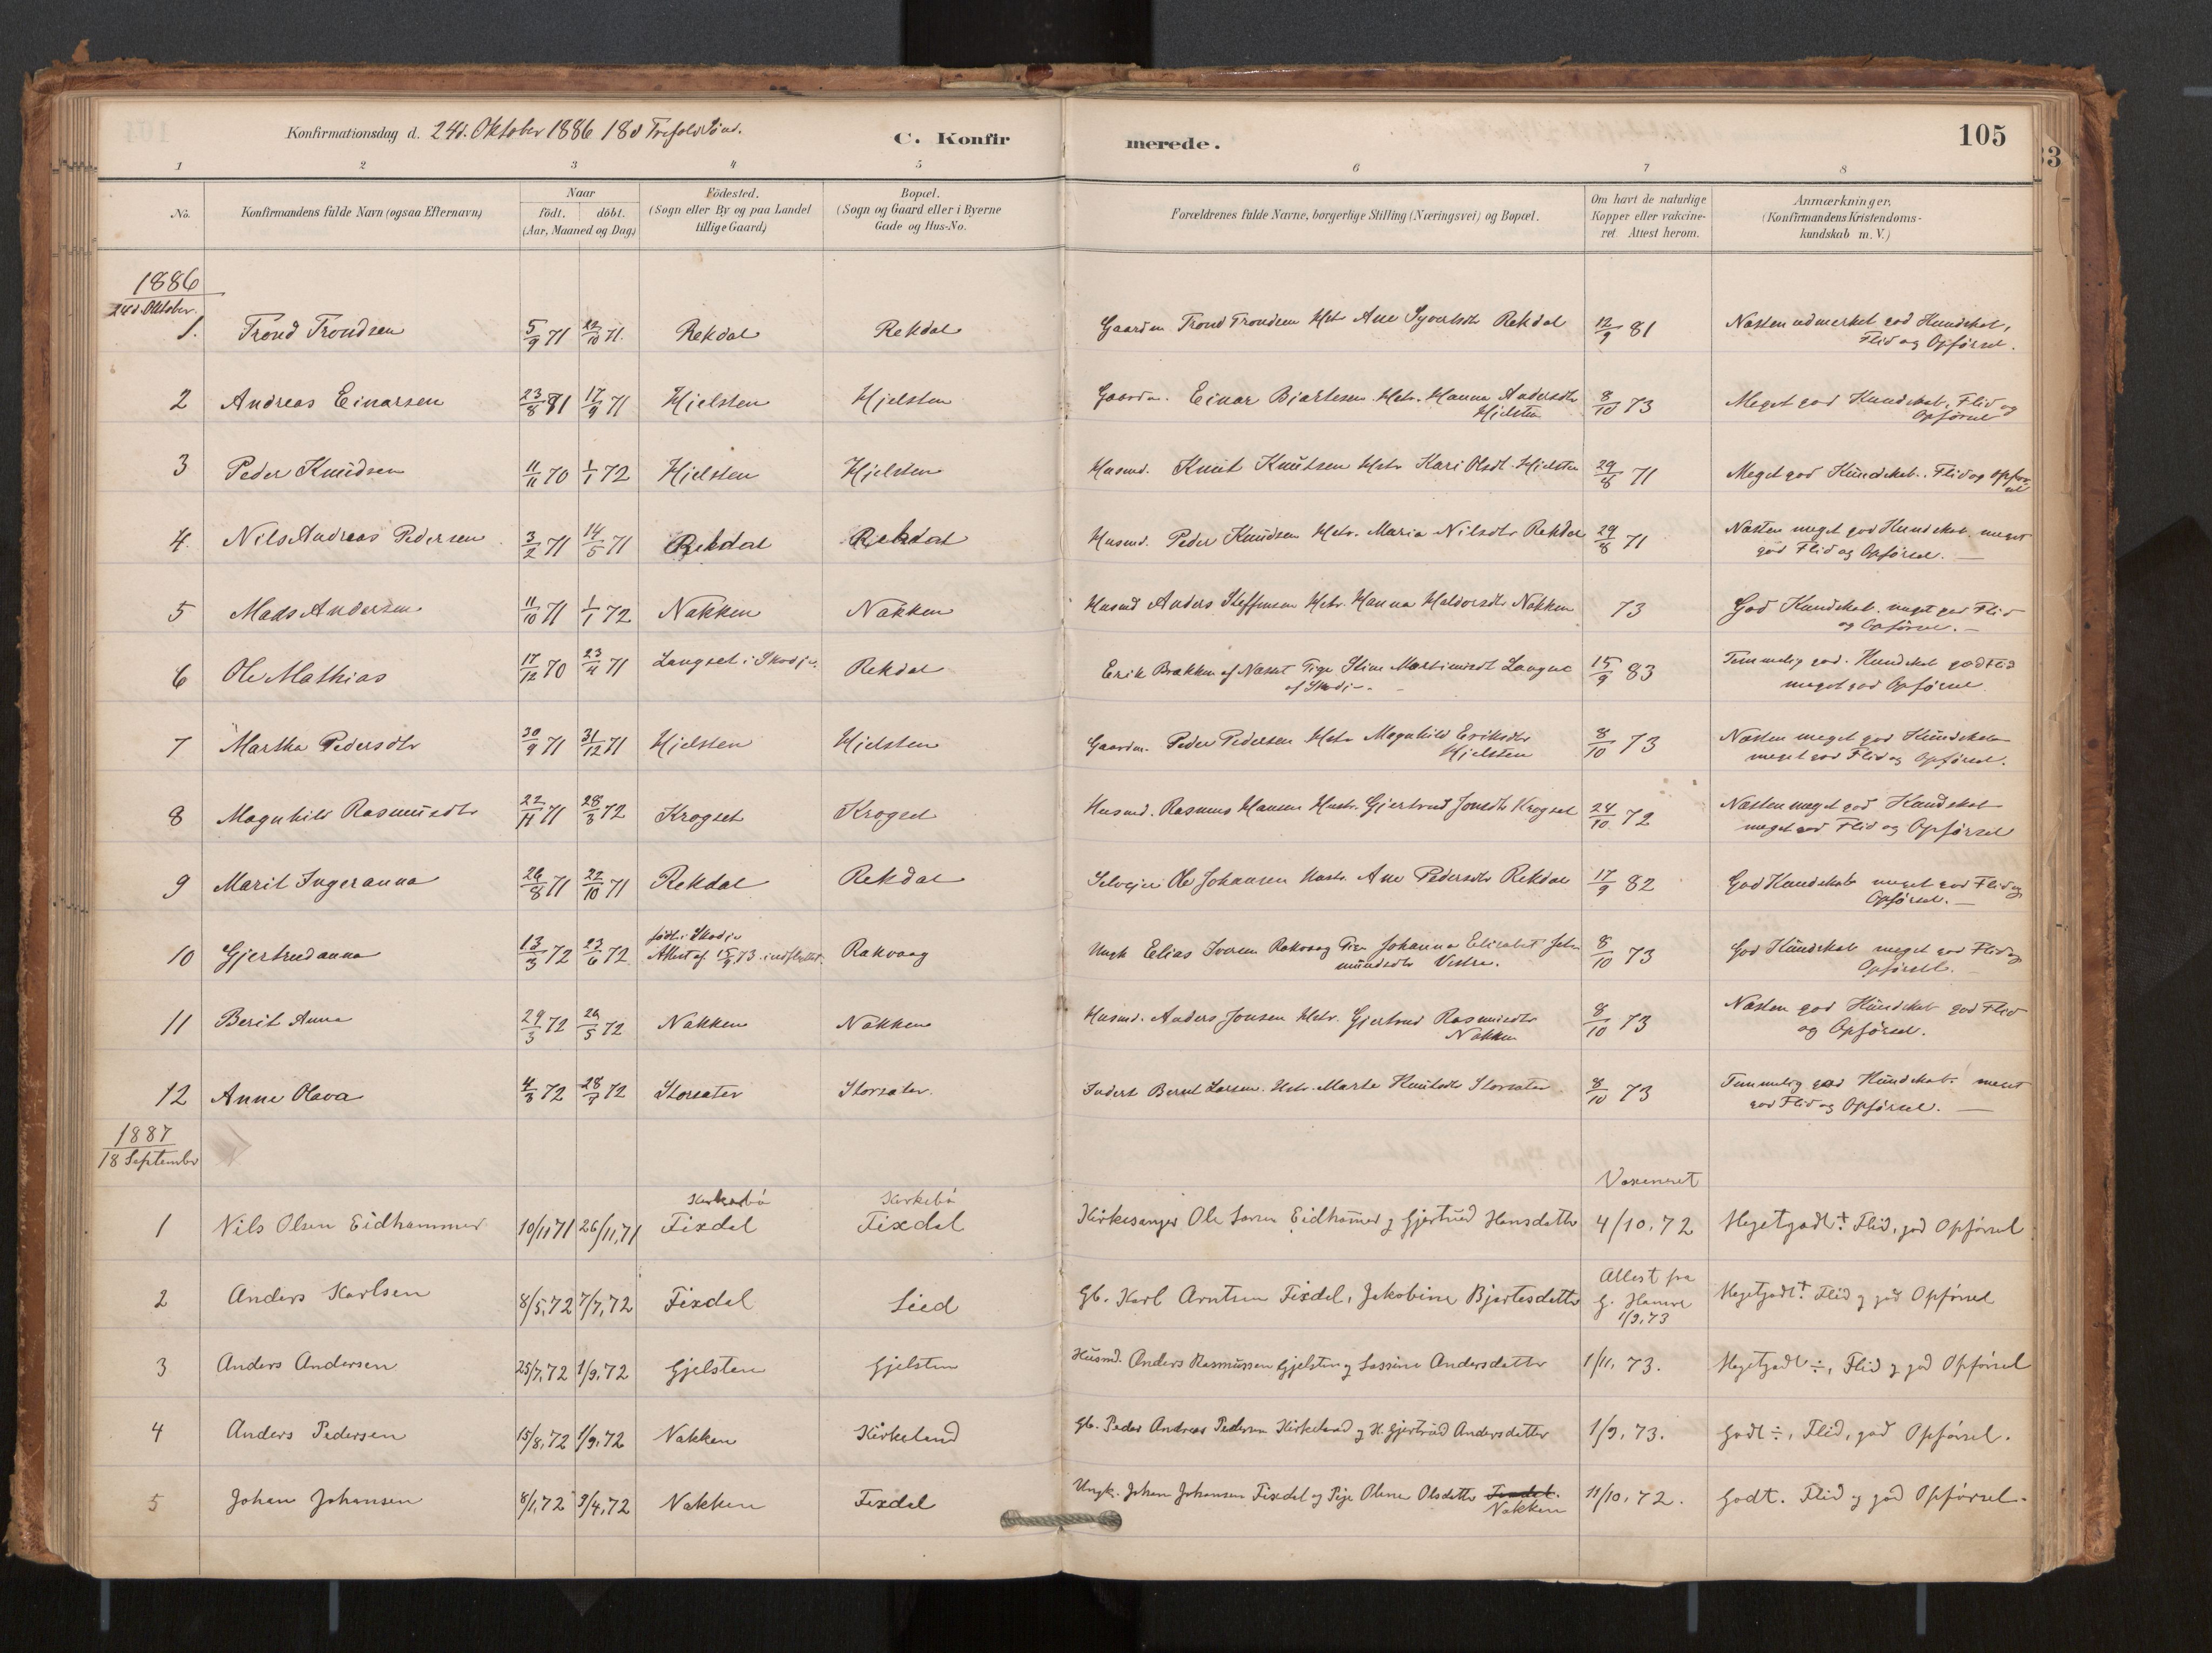 Konfirmationsdag d. 24d. Oktober 1886 18d Trefold. Sønd.
C. Konfirmerede.
105
33
1 2 3 4 5 6 7 8
No. Konfirmandens fulde Navn (ogsaa Efternavn) Naar födt. döbt. (Aar, Maaned og Dag) Födested. (Sogn eller By og paa Landet tillige Gaard) Bopæl. (Sogn og Gaard eller i Byerne Gade og Hus-No. Forældrenes fulde Navne, borgerlige Stilling (Næringsvei) og Bopæl. Om havt de naturlige Kopper eller vakcineret. Attest herom. Anmærkninger. (Konfirmandens Kristendomskundskab m. V.)
1886
24d. Oktober.
1. Trond Trondsen 5/9 71 22/10 71. Rekdal Rekdal Gaardm. Trond Trondsen Hstr Ane Syvertsdtr Rekdal 12/9 81 Næsten udmerket god Kundskab, Flid og Opførsel.
2 Andreas Einarsen 23/8 81 17/9 71 Hjelsten Hjelsten Gaardm. Einar Bjartesen Hstr. Hanna Andersdtr Hjelsten 8/10 73 Meget god Kundskab, Flid og Opførsel
3 Peder Knudsen 11/11 70 1/1 72 Hjelsten Hjelsten Husmd. Knut Knutsen Hstr Kari Olsdt. Hjelsten 29/8 71 Meget god Kundskab. Flid og Opførsel
4. Nils Andreas Pedersen 3/2 71 14/5 71 Rekdal Rekdal Husmd. Peder Knudsen Hstr. Maria Nilsdtr Rekdal 29/8 71 Næsten meget god Kundskab. meget god Flid og Opførsel. —
5 Mads Andersen 11/10 71 1/1 72 Nakken Nakken Husmd Anders Steffensen Hstr. Hanna Haldorsdtr Nakken 73 God Kundskab. meget god Flid og Opførsel. —
6 Ole Mathias 17/12 70 23/4 71 Langset i Skodje. Rekdal Erik Brakken af Næsset Pige Stine Martinusdt Langse af Skodje 15/9 83 Temmelig god. Kundskab god Flid meget god Opførsel
7 Martha Pedersdtr 30/9 71 31/12 71 Hjelsten Hjelsten Gaardm. Peder Pedersen Hstr Magnhild Eriksdtr Hjelsten 8/10 73 Næsten meget god Kundskab meget god Flid og Opførsel.
8 Magnhild Rasmusdtr 22/11 71 28/3 72 Krogset Krogset Husmd. Rasmus Hansen Hustr. Gjertrud Jonsdtr Krogset 24/10 72 Næsten meget god Kundskab meget god Flid og Opførsel
9 Marit Ingeranna 26/8 71 22/10 71 Rekdal Rekdal Selveier Ole Johansen Hustr. Ane Pedersdtr Rekdal 17/9 82 God Kundskab meget god Flid og Opførsel. —
10 Gjertrudanna 13/3 72 23/6 72 født i Skodje Attest af 15/9 73. indflyttet. Rakvaag Ungk Elias Iversen Rakvaag Pige Johanna Elisabet mundsdtr Vestre. 8/10 73 God Kundskab meget god Flid og Opførsel.
11 Berit Anna 29/3 72 26/5 72 Nakken Nakken Husmd. Anders Jonsen Hstr. Gjertrud Rasmusdtr Nakken 8/10 73 Næsten god Kundskab god Flid og Opførsel.
12 Anne Olava 4/3 72 28/7 72 Storsæter Storsæter. Inderst Bernt Larsen. Hstr. Marte Knutsdtr Storsæter 8/10 73 Temmelig god Kundskab. meget god Flid og Opførsel. —
1887
18 September
Vaxeneret
1 Nils Olsen Eidhammer 10/11 71 26/11, 71 Kirkebø Fixdal Kirkebø Fixdal Kirkesanger Ole Larsen Eidhamer og Gjertrud Hansdatter 4/10, 72 Megetgodt ÷ Flid, god Opførsel
2 Anders Karlsen 8/5, 72 7/7, 72 Fixdal Lied Gb. Karl Arntsen Fixdal, Jakobine Bjartesdatter Attest fra G. Hamre 1/9, 73 Megetgodt ÷ Flid og god Opførsel
3 Anders Andersen 25/7, 72 1/9, 72 Gjelsten Gjelsten Husmd. Anders Rasmussen Gjelsten og Lassine Andersdatter 1/11, 73. Megetgodt ÷, Flid og god Opførsel
4 Anders Pedersen 15/8, 72 1/9, 72 Nakken Kirkeland Gb. Peder Andreas Pedersen Kirkeland og H. Gjertrud Andersdatter 1/9, 73. Godt ÷, Flid, god Opførsel.
5 Johan Johansen 8/1, 72 9/4, 72 Nakken Fixdal Ungk. Johan Johansen Fixdal og Pige Olene Olsdatter Fixdal. Nakken 11/10, 72. Godt. Flid og god Opførsel.